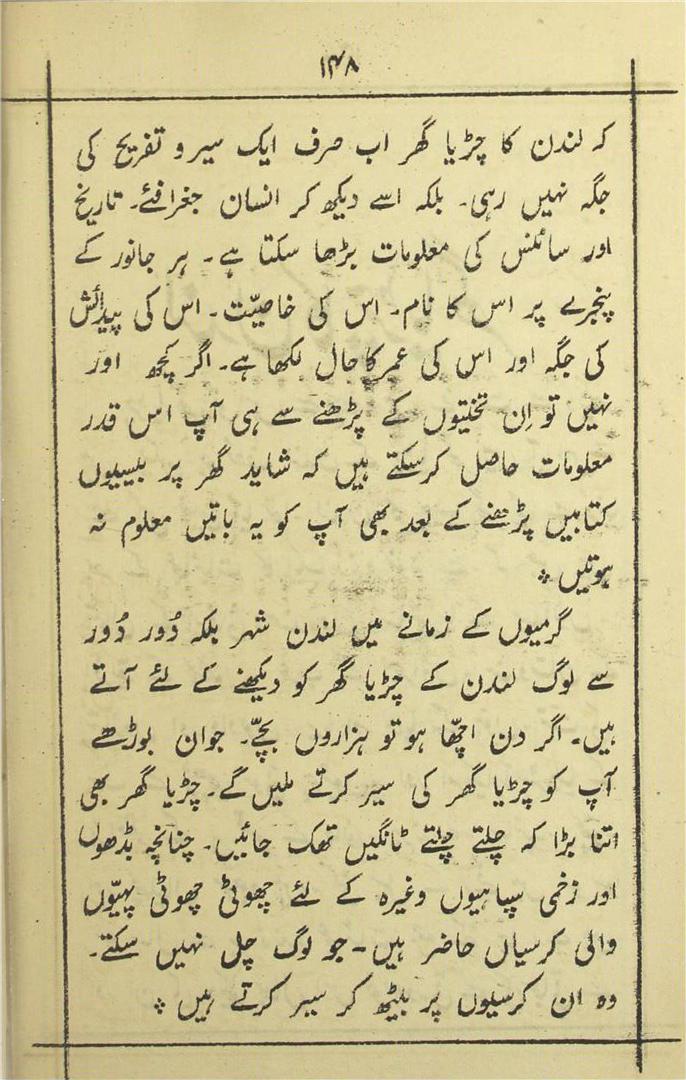 ۱۴۸
کہ لندن کا چڑیا گھر اب صرف ایک سیر و تفریح کی
جگہ نہیں رہی۔ بلکہ اسے دیکھ کر انسان جغرافئے۔ تاریخ
اور سائنس کی معلومات بڑھا سکتا ہے۔ ہر جانور کے
پنجرے پر اس کا نام۔ اس کی خاصیّت۔ اس کی پیدائش
کی جگہ اور اس کی عمر کا حال لکھا ہے۔ اگر کچھ اور
نہیں تو اِن تختیوں کے پڑھنے سے ہی آپ اس قدر
معلومات حاصل کرسکتے ہیں کہ شاید گھر پر بیسیوں
کتابیں پڑھنے کے بعد بھی آپ کو یہ باتیں معلوم نہ
ہوتیں ؞
گرمیوں کے زمانے میں لندن شہر بلکہ دُور دُور
سے لوگ لندن کے چڑیا گھر کو دیکھنے کے لئے آتے
ہیں۔ اگر دن اچھّا ہو تو ہزاروں بچّے۔ جوان بوڑھے
آپ کو چڑیا گھر کی سیر کرتے ملیں گے۔ چڑیا گھر بھی
اتنا بڑا کہ چلتے چلتے ٹانگیں تھک جائیں۔ چنانچہ بڈھوں
اور زخمی سپاہیوں وغیرہ کے لئے چھوٹی چھوٹی پہیّوں
والی کرسیاں حاضر ہیں۔ جو لوگ چل نہیں سکتے۔
وہ ان کرسیوں پر بیٹھ کر سیر کرتے ہیں ؞